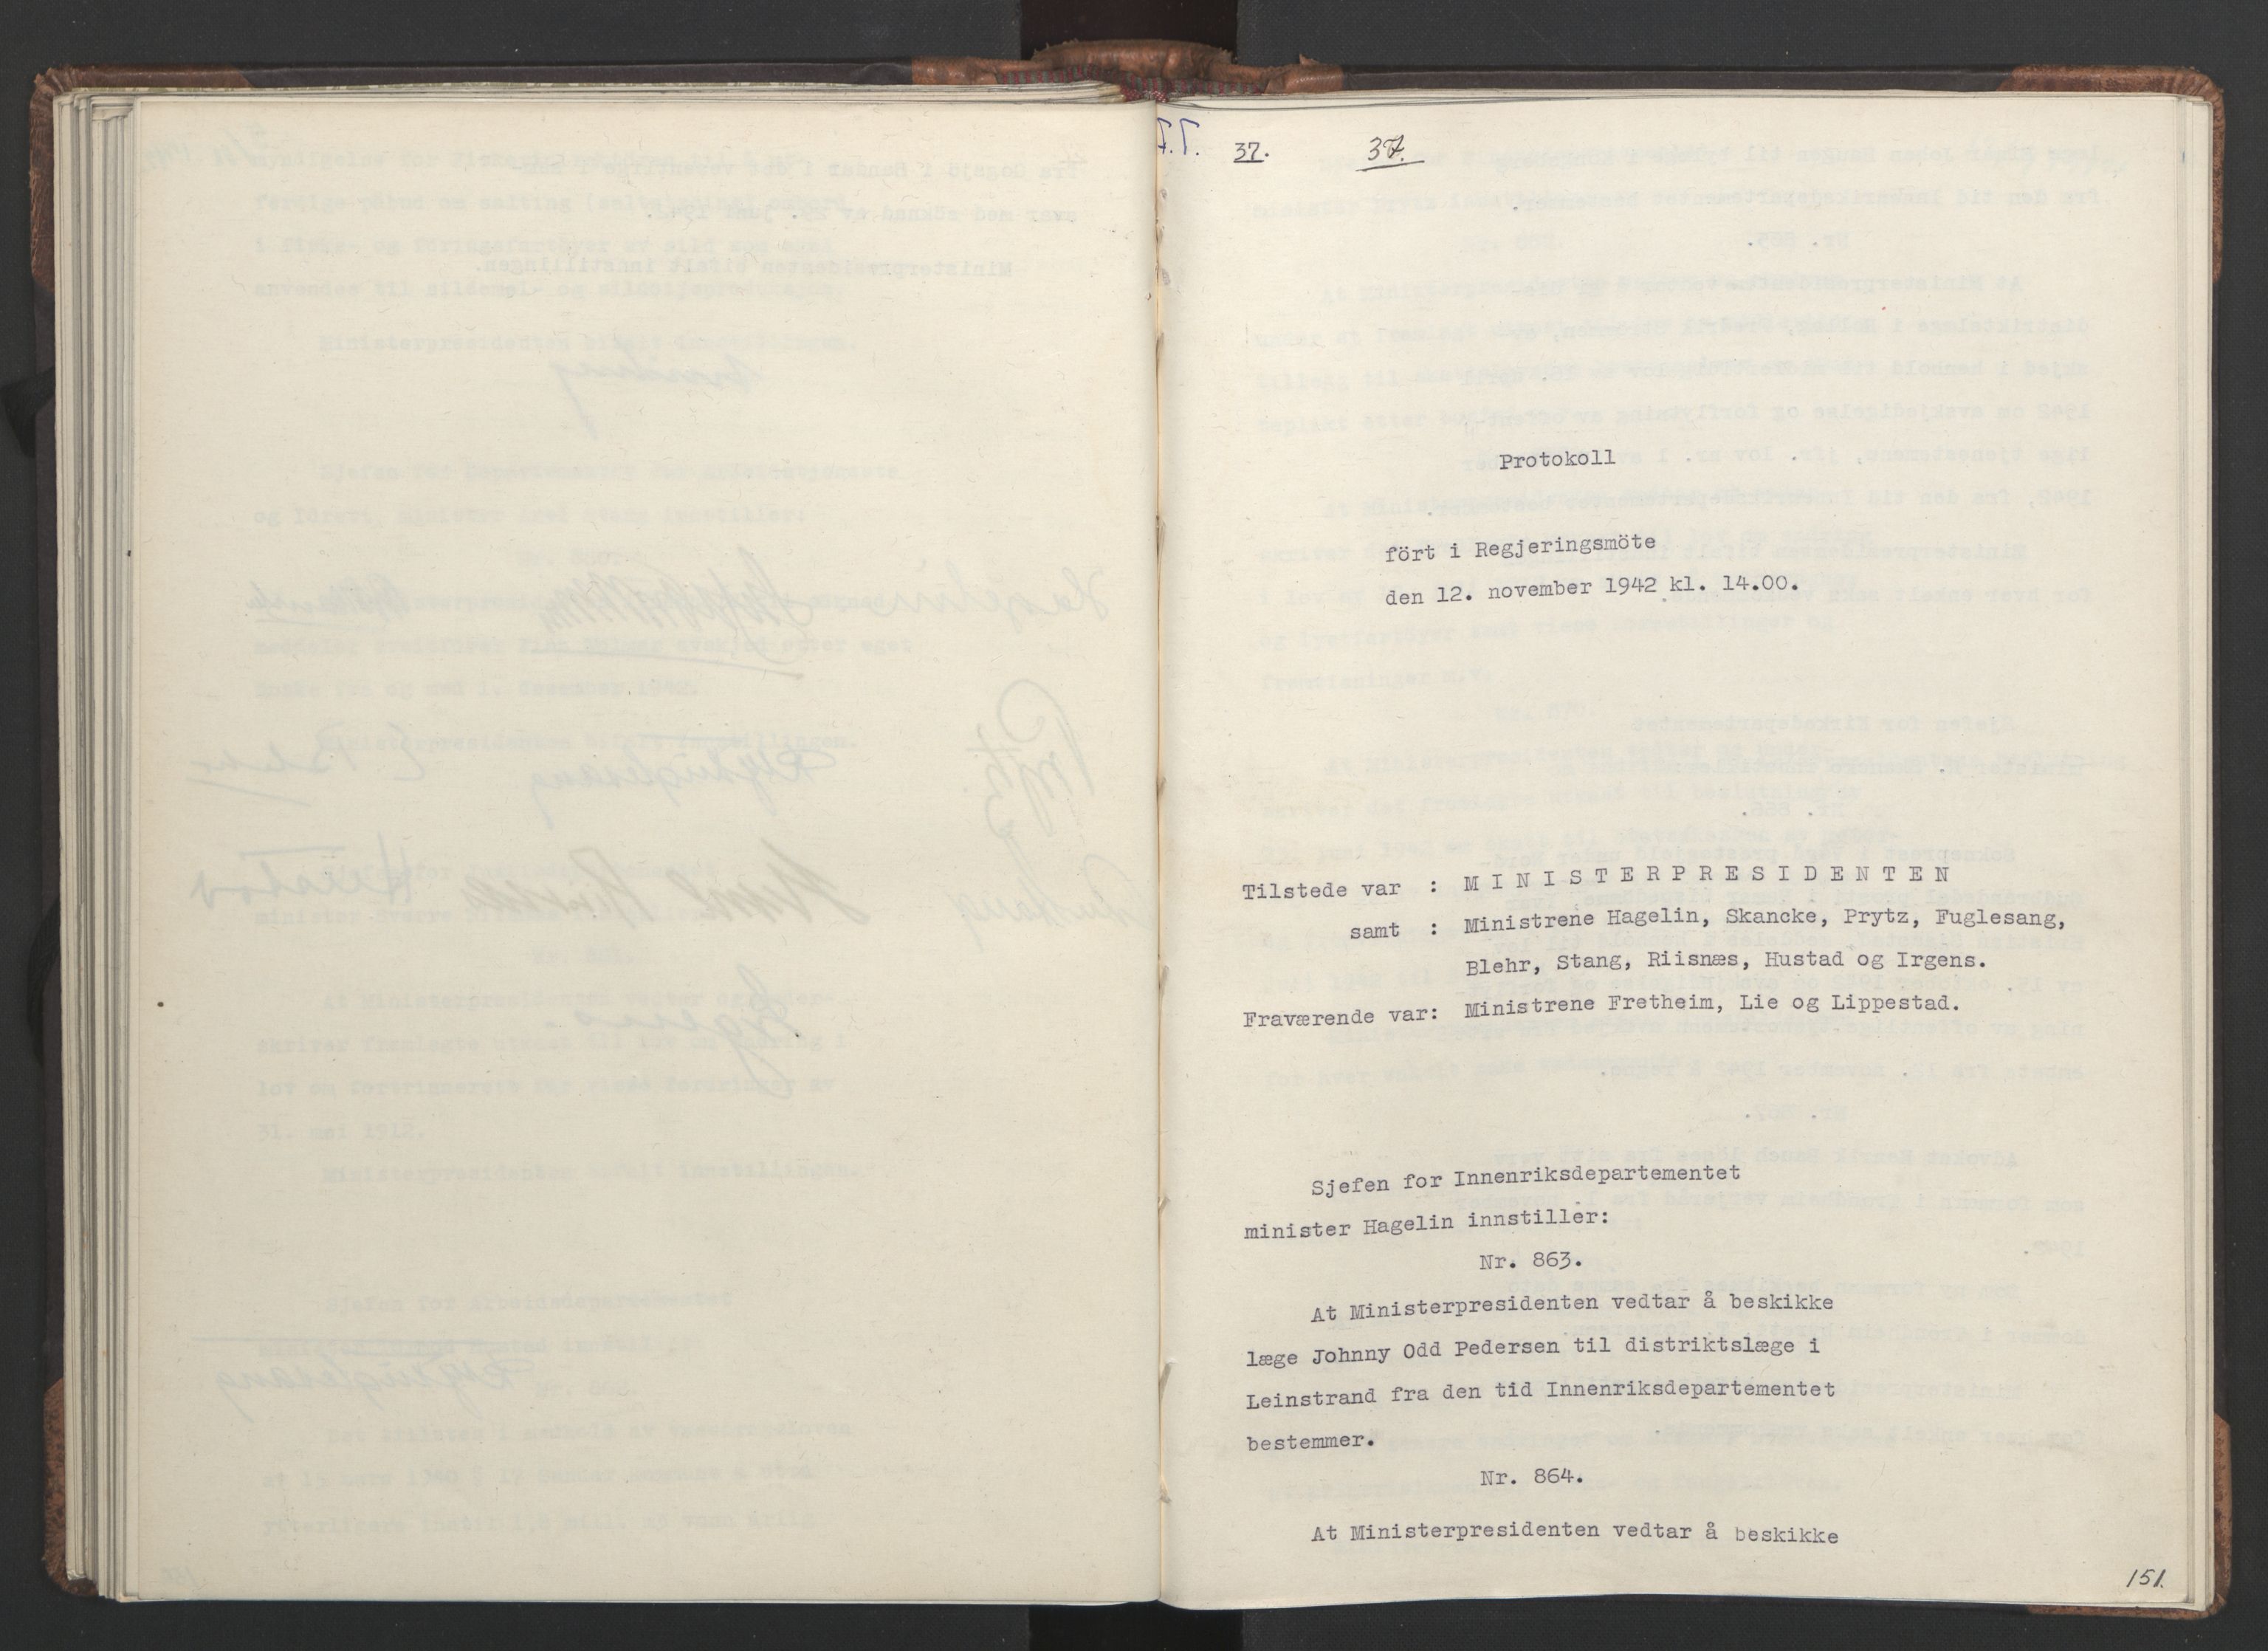 37. 37.
Protokoll
fört i Regjeringsmöte
den 12. november 1942 kl. 14.00.
Tilstede var : M I N I S T E R P R E S I D E N T E N
samt : Ministrene Hagelin, Skancke, Prytz, Fuglesang,
Blehr, Stang, Riisnæs, Hustad og Irgens.
Fraværende var: Ministrene Fretheim, Lie og Lippestad.
Sjefen for Innenriksdepartementet
minister Hagelin innstiller:
Nr. 863.
At Ministerpresidenten vedtar å beskikke
læge Johnny Odd Pedersen til distriktslæge i
Leinstrand fra den tid Innenriksdepartementet
bestemmer.
Nr. 864.
At Ministerpresidenten vedtar å beskikke
151.